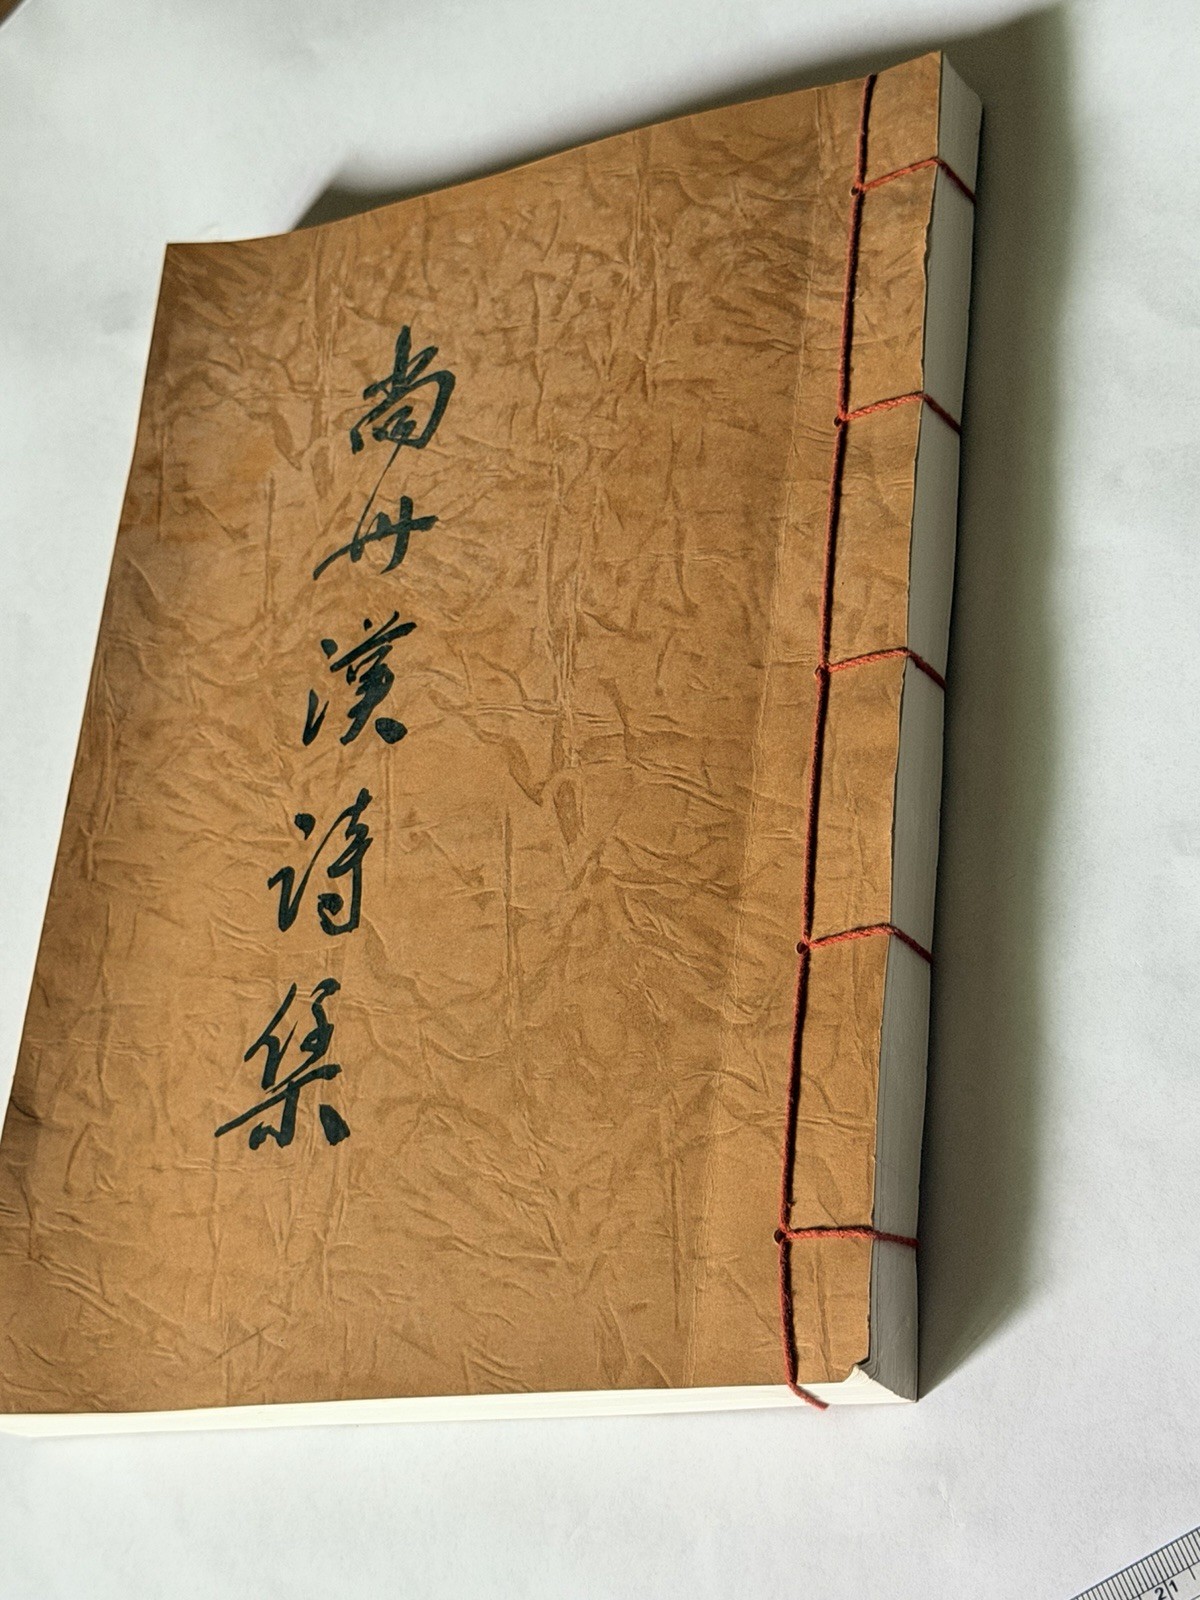 尚州漢詩集
21